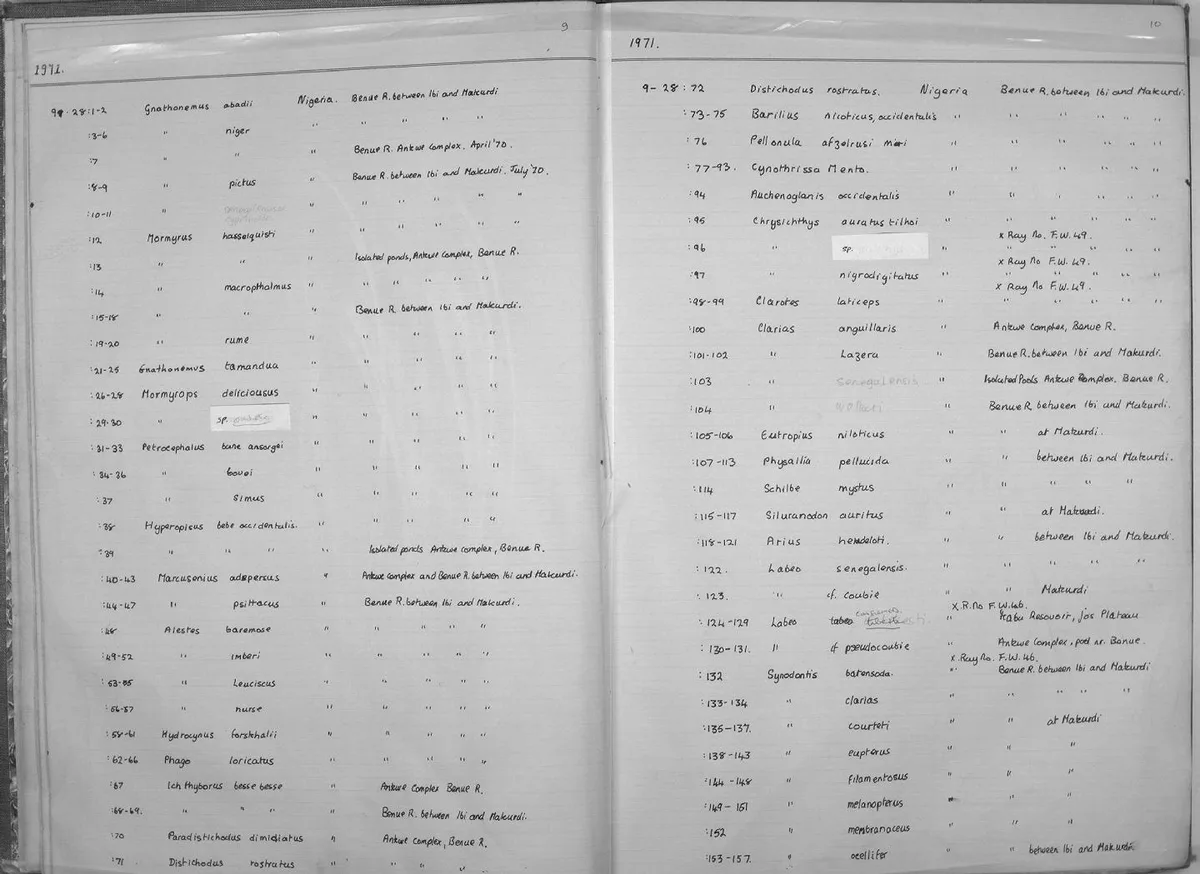 9
1971.
99.28:1-2 Gnathonemus abadii Nigeria. Benue R. between Ibi and Makurdi
:3-6 " niger " " " " "
:7 " " " Benue R. Ankwe Complex. April '70.
:8-9 " pictus " Benue R. between Ibi and Makurdi. July '70.
:10-11 " " " " "
:12 Mormyrus hasselquisti " " " " "
:13 " " " Isolated ponds, Ankwe Complex, Benue R.
:14 " macropthalmus " " " " "
:15-18 " " " Benue R. between Ibi and Makurdi.
:19-20 " rume " " " " "
:21-25 Gnathonemus tamandua " " " " "
:26-28 Mormyrops deliciousus " " " " "
:29-30 " sp. " " " " "
:31-33 Petrocephalus bane ansorgei " " " " "
:34-36 " bovei " " " " "
:37 " simus " " " " "
:38 Hyperopisus bebe occidentalis. " " " " "
:39 " " " " Isolated ponds Ankwe Complex, Benue R.
:40-43 Marcusenius adspersus " Ankwe Complex and Benue R. between Ibi and Makurdi.
:44-47 " psittacus " Benue R. between Ibi and Makurdi.
:48 Alestes baremose " " " " "
:49-52 " imberi " " " " "
:53-55 " leuciscus " " " " "
:56-57 " nurse " " " " "
:58-61 Hydrocynus forskhalii " " " " "
:62-66 Phago loricatus " " " " "
:67 Ichthyborus besse besse " Ankwe Complex Benue R.
:68-69. " " " " Benue R. between Ibi and Makurdi.
:70 Paradistichodus dimidiatus " Ankwe Complex, Benue R.
:71 Distichodus rostratus " " " "
10
1971.
9-28:72 Distichodus rostratus. Nigeria Benue R. between Ibi and Makurdi.
:73-75 Barilius niloticus, occidentalis " " " " "
:76 Pellonula afzelrusi " " " " "
:77-93. Cynothrissa Mento. " " " " "
:94 Auchenoglanis occidentalis " " " " "
:95 Chrysichthys auratus tilhoi " " " " "
x Ray No. F.W. 49.
:96 " sp. " " " " "
x Ray No F.W. 49.
:97 " nigrodigitatus " " " " "
x Ray No F.W. 49.
:98-99 Clarotes laticeps " " " " "
:100 Clarias anguillaris " Ankwe Complex, Benue R.
:101-102 " Lazera " Benue R. between Ibi and Makurdi.
:103 " Senegalensis " Isolated Pools Ankwe Complex. Benue R.
:104 " " Benue R. between Ibi and Makurdi.
:105-106 Eutropius niloticus " " at Makurdi.
:107-113 Physallia pellucida " " between Ibi and Makurdi.
:114 Schilbe mystus " " " " "
:115-117 Siluranodon auritus " " at Makurdi.
:118-121 Arius heudeloti. " " between Ibi and Makurdi.
:122. Labeo senegalensis. " " " " "
:123. " cf. coubie " " Makurdi
X.R.No F.W. 46.
:124-129 Labeo " Resovoir, Jos Plateau
:130-131. " cf pseudocoubie " Ankwe Complex, pool nr. Benue.
x.Ray No. F.W. 46.
:132 Synodontis batensoda. " Benue R. between Ibi and Makurdi
:133-134 " clarias " " " " "
:135-137. " courteti " " at Makurdi
:138-143 " eupterus " " "
:144-148 " filamentosus " " "
:149-151 " melanopterus " " "
:152 " membranaceus " " "
:153-157. " ocellifer " " between Ibi and Makurdi.